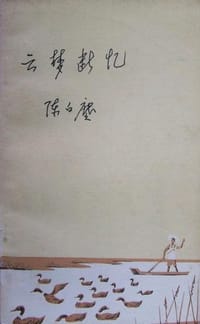 云梦断忆
陈白尘